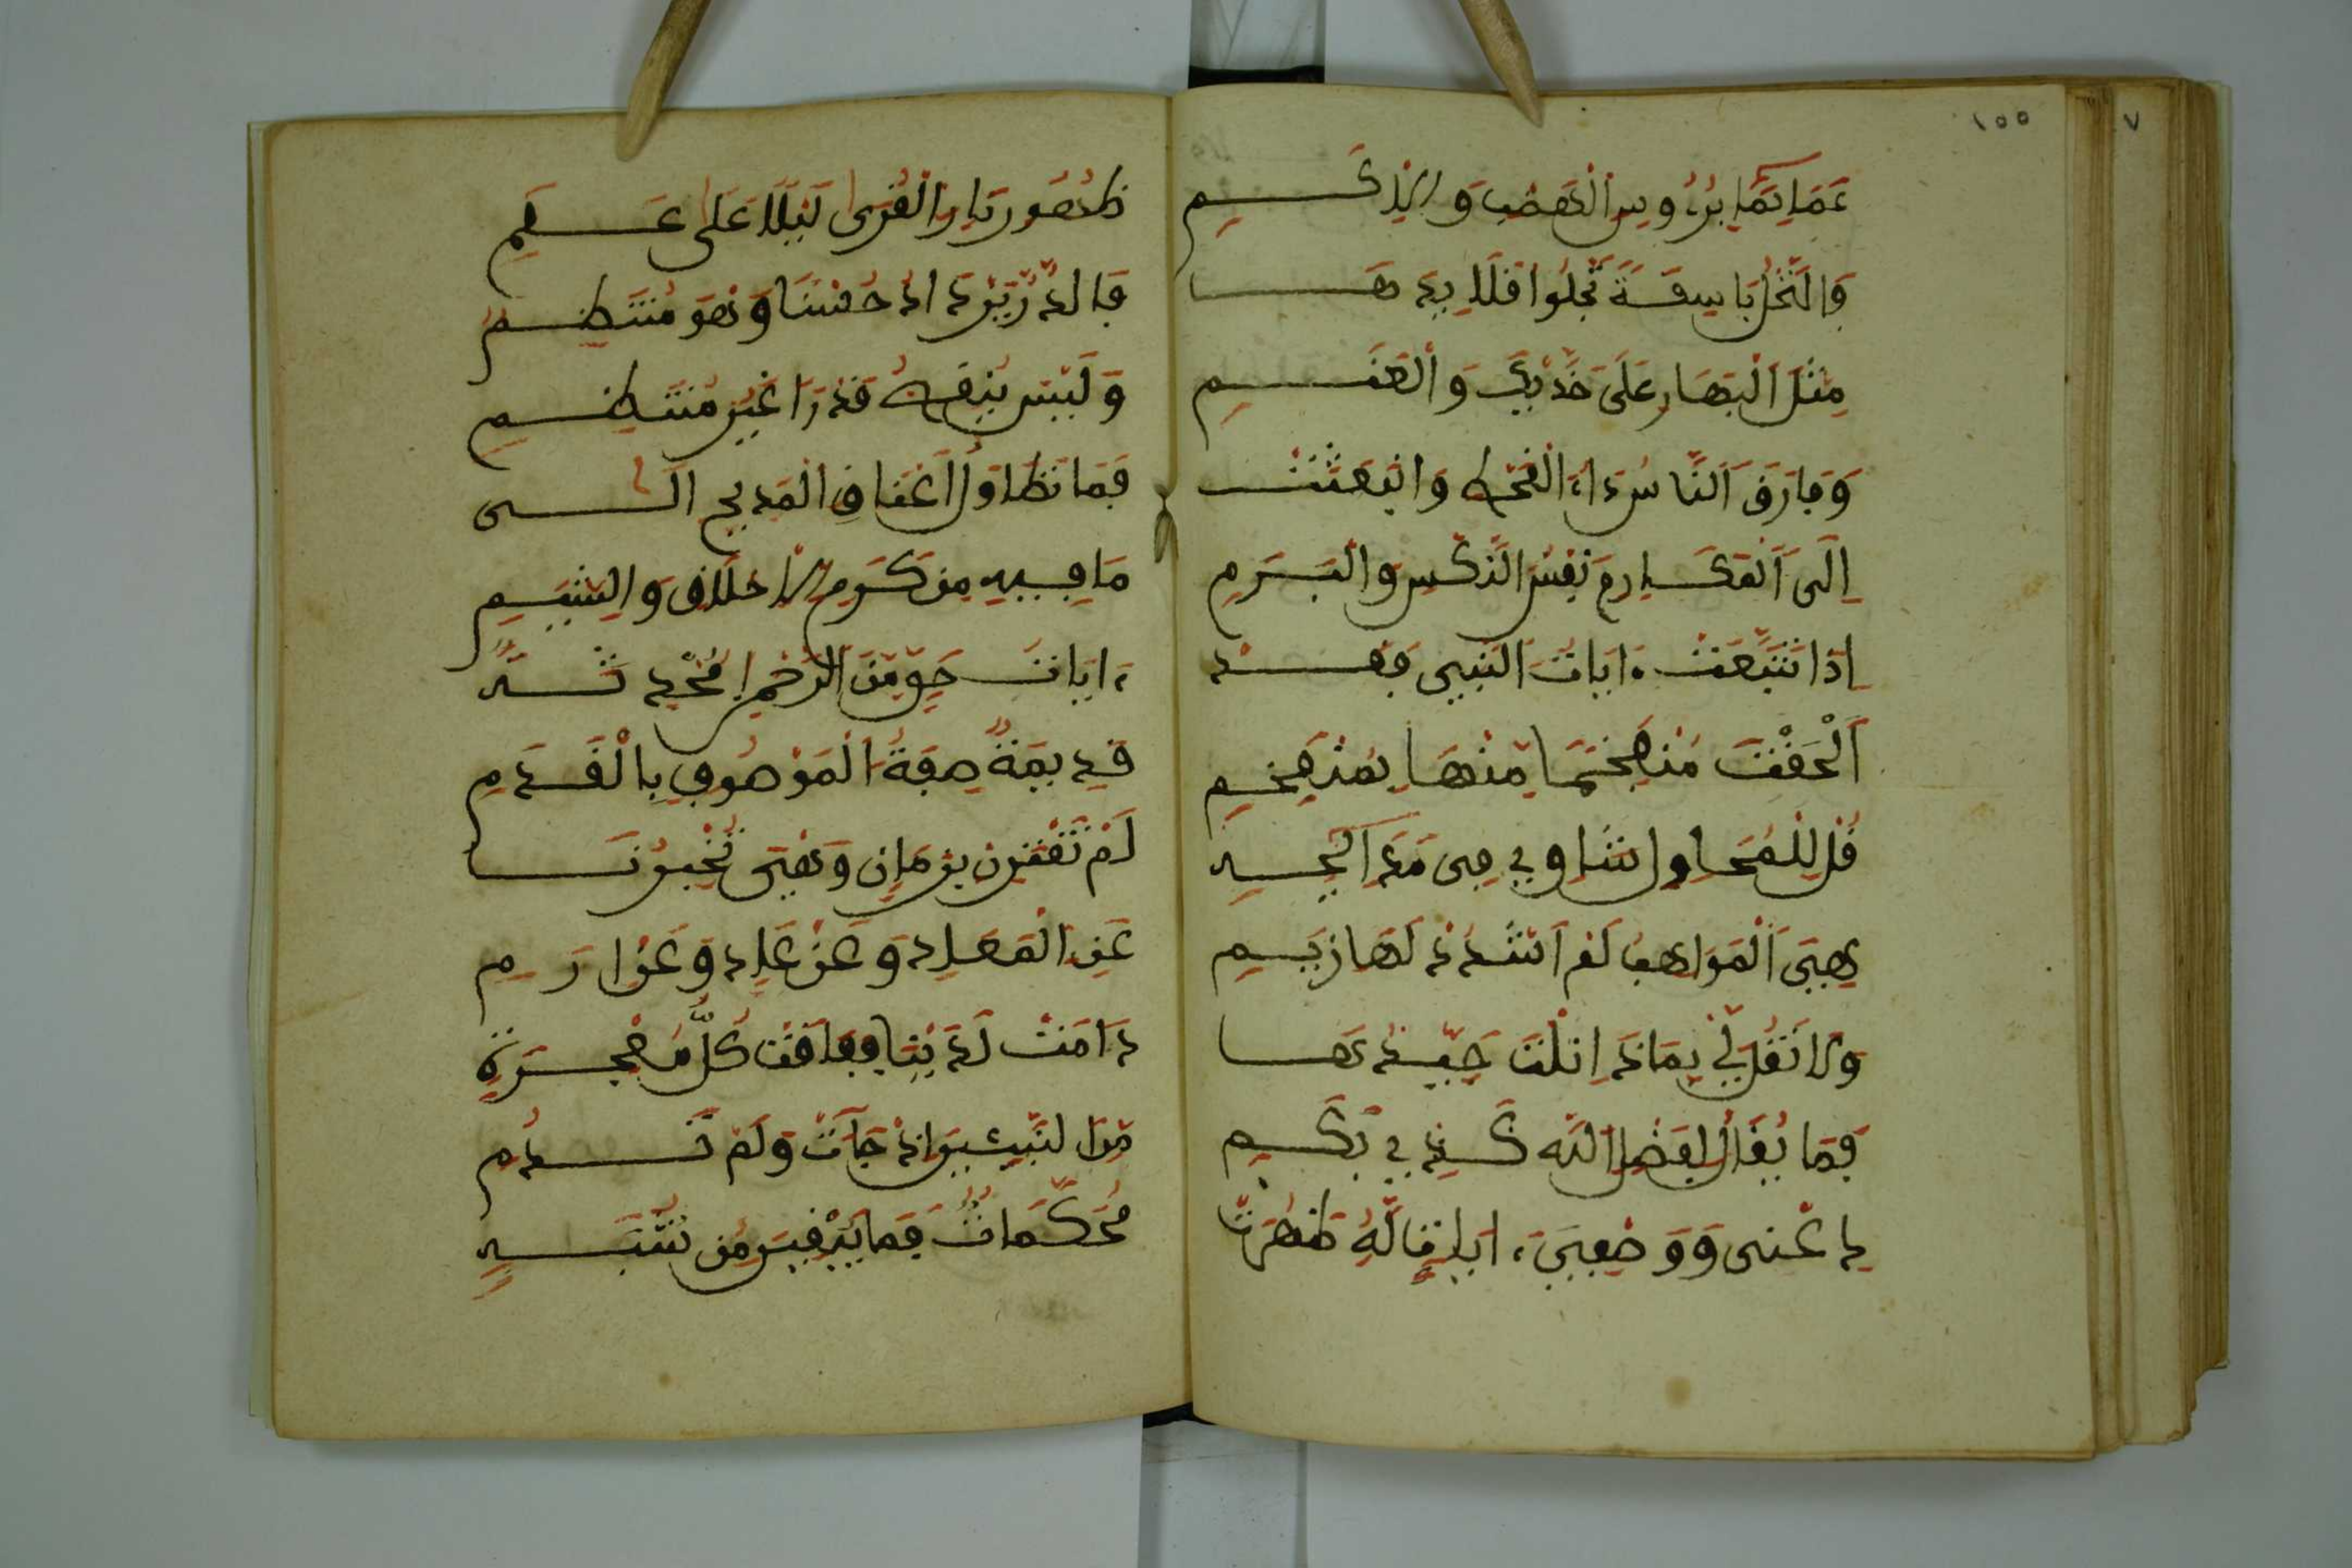 ١٥٥
٧
عَمَائِمًا بِرُءُوسِ الْهَضْبِ وَالْأَكَمِ
وَالنَّخْلُ بَاسِقَةٌ تَجْلُوا قَلَائِدهَا
مِثْلَ الْبَهَارِ عَلَى خَدَّيْكَ وَالْعَنَمِ
وَفَارَقَ النَّاسَ دَاءُ الْقَحْطِ وَانْبَعَثَتْ
إِلَى الْمَكَارِمِ نَفْسُ النِّكْسِ وَالْبَرَمِ
إِذَا تَتَبَّعْتَ ءَايَاتِ النَّبِيِّ فَقَدْ
أَلْحَقْتَ مُنْفَخِمًا مِنْهَا بِمُنْفَخِمِ
قُلْ لِلْمُحَاوِلِ شَأْوٍ فِي مَدَائِحِهِ
هِيَ الْمَوَاهِبُ لَمْ أَشْدُدْ لَهَا زِيَمِ
وَلَا تَقُلْ لِي بِمَاذَا نِلْتَ جَيِّدَهَا
فَمَا يُقَالُ لِفَضْلِ اللَّهِ بِكَمِ
دَعْنِي وَوَصْفِيَ ءَايَاتٍ لَهُ ظَهَرَتْ
ظُهُورَ نَارِ الْقِرَى لَيْلًا عَلَى عَلَمِ
فَالدُّرُّ يَزْدَادُ حُسْنًا وَهْوَ مُنْتَظِمٌ
وَلَيْسَ يَنْقُصُ قَدْرًا غَيْرَ مُنْتَظِمِ
فَمَا تَطَاوَلَ أَعْنَاقُ الْمَدِيحِ إِلَى
مَا فِيهِ مِنْ كَرَمِ الْأَخْلَاقِ وَالشِّيَمِ
ءَايَاتُ حَقٍّ مِنَ الرَّحْمَنِ مُحْدَثَةٌ
قَدِيمَةٌ صِفَةُ الْمَوْصُوفِ بِالْقِدَمِ
لَمْ تَقْتَرِنْ بِزَمَانٍ وَهْيَ تُخْبِرُنَا
عَنِ الْمَعَادِ وَعَنْ عَادٍ وَعَنْ إِرَمِ
دَامَتْ لَدَيْنَا فَفَاقَتْ كُلَّ مُعْجِزَةٍ
مِنَ النَّبِيِّينَ إِذْ جَاءَتْ وَلَمْ تَدُمِ
مُحَكَّمَاتٌ فَمَا يُبْقِينَ مِنْ شُبَهٍ